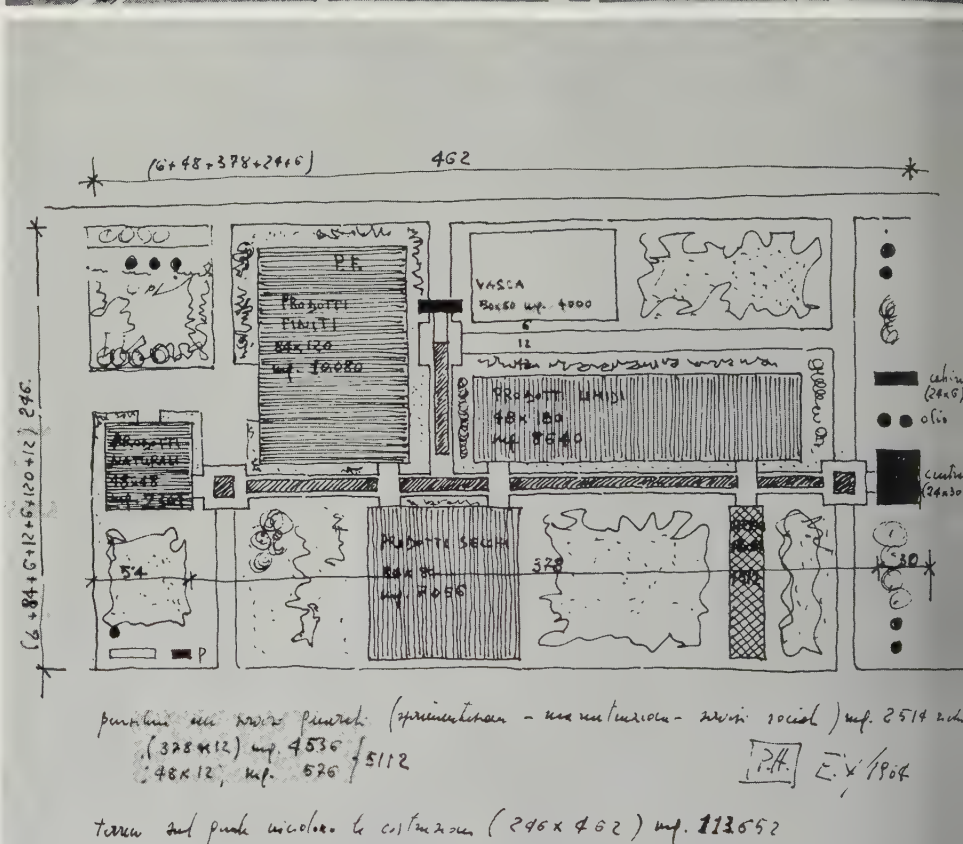 (6+48+378+24+6) 462
(6+84+6+12+6+120+12) 246.
P.F.
PRODOTTI
FINITI
84x120
mq. 10.080
VASCA
50x80 mq. 4000
6
12
PRODOTTI UMIDI
48x180
mq 8640
PRODOTTI
NATURALI
48x48
PRODOTTI SECCHI
mq. 7056
54
378
30
P
(24x6)
olio
(24x30
(sperimentazione - manutenzione - servizi sociali) mq. 2514
(378x12) mq. 4536
48x12, mq. 576 } 5112
P.H. E.X/1964
terreno sul quale incidono le costruzioni (246x462) mq. 113.652